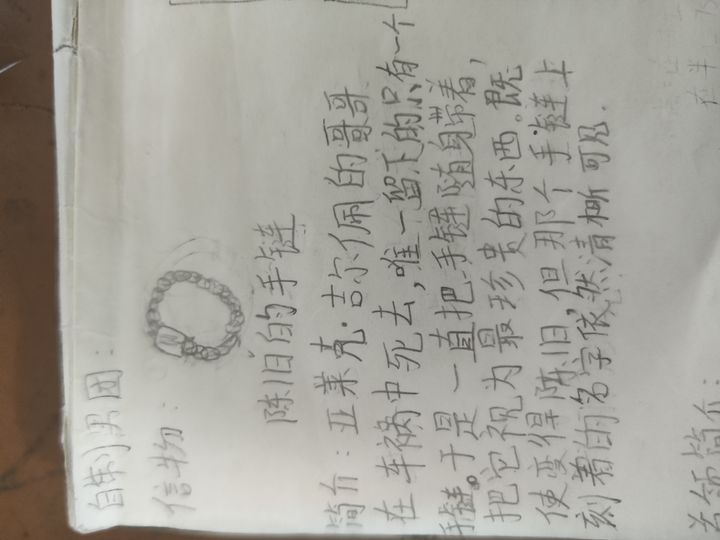 自制男团：
信物：
陈旧的手链
简介：亚莱克·吉尔佩的哥哥
在车祸中死去，唯一留下的只有一个
手链。于是一直把手链随身带着，
把它视为最珍贵的东西。既
使变得陈旧，但那个手链上
刻着的名字依然清晰可见.
简介：